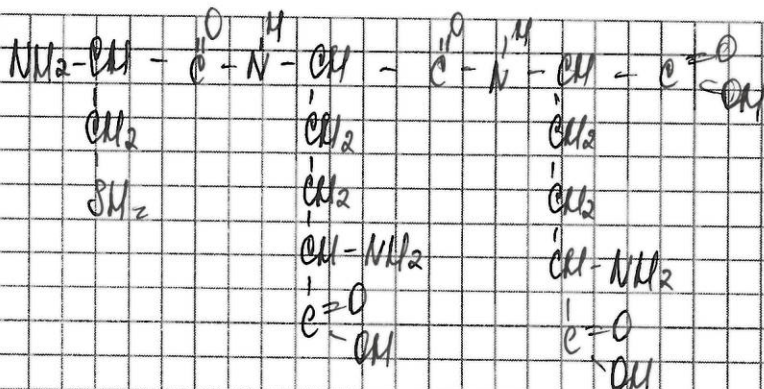 O H O H
NH2-CH - C - N - CH - C - N - CH - C=O
OH
CH2 CH2 CH2
SH2 CH2 CH2
CH-NH2 CH-NH2
C=O C=O
OH OH